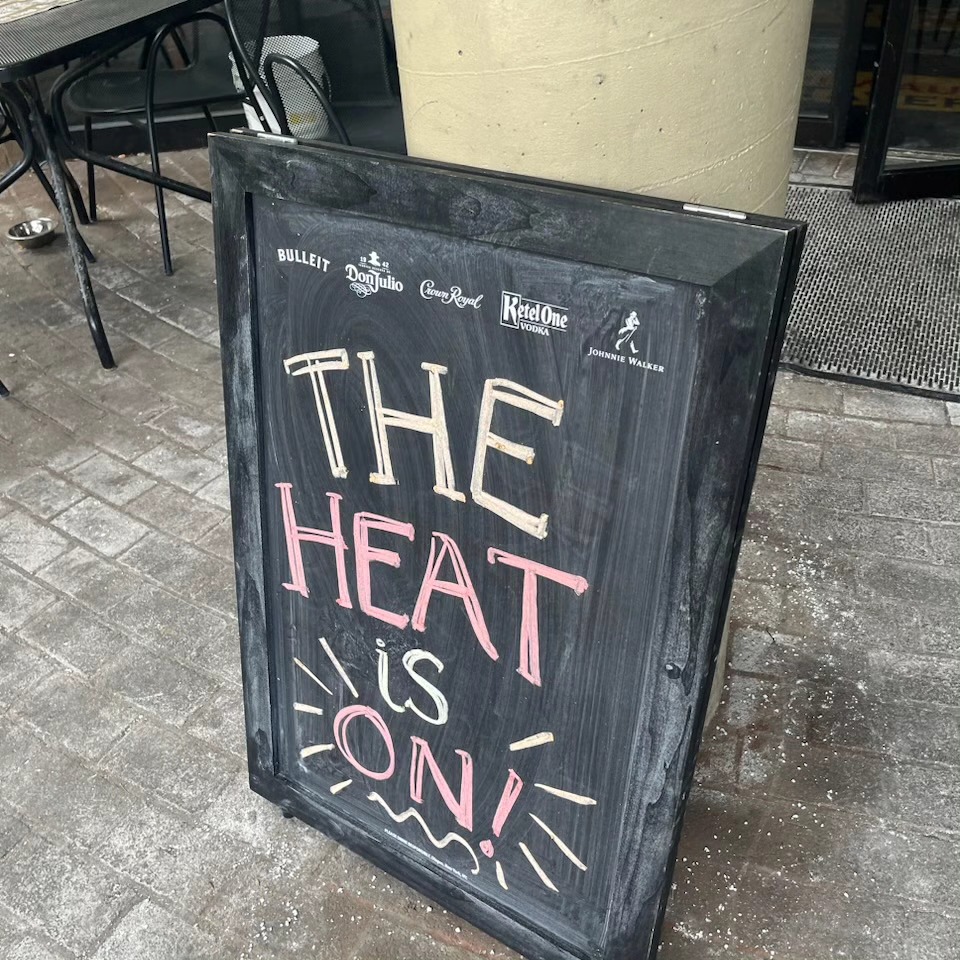 BULLEIT
19 42
Don Julio
Crown Royal
Ketel One
VODKA
JOHNNIE WALKER
THE
HEAT
is
ON!